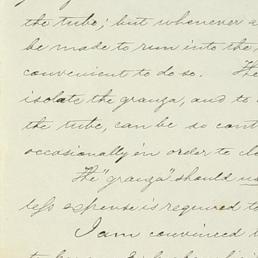 the tube; but whenever a
be made to run into the
convenient to do so. The
isolate the granza, and to
the tube, can be so cont
occasionally in order to cle
The "granza" should us
less expense is required to
I am convinced t